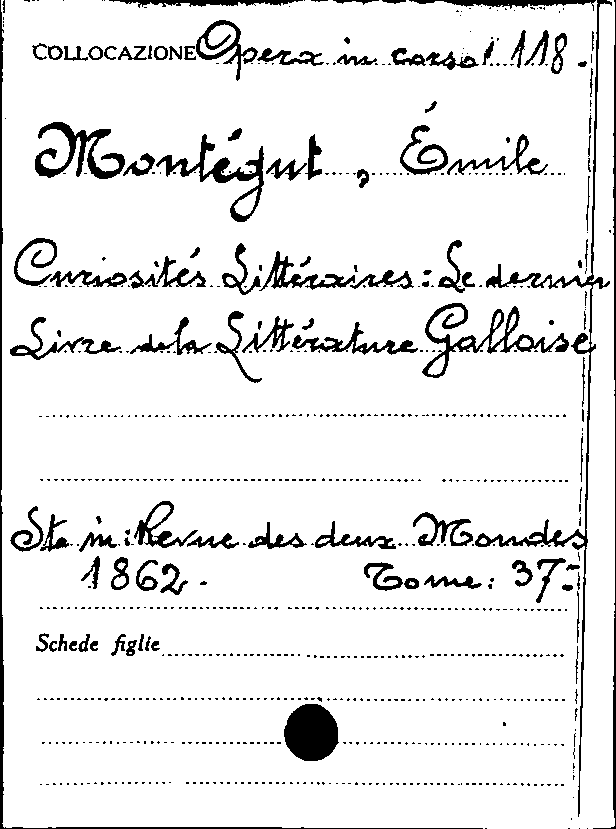 COLLOCAZIONE Opera in corso 1 118.
Montégut, Émile
Curiosités Littéraires: Le dernier
Livre de la Littérature Galloise
Sta in: Revue des deux Mondes
1862. Tome: 37=
Schede figlie